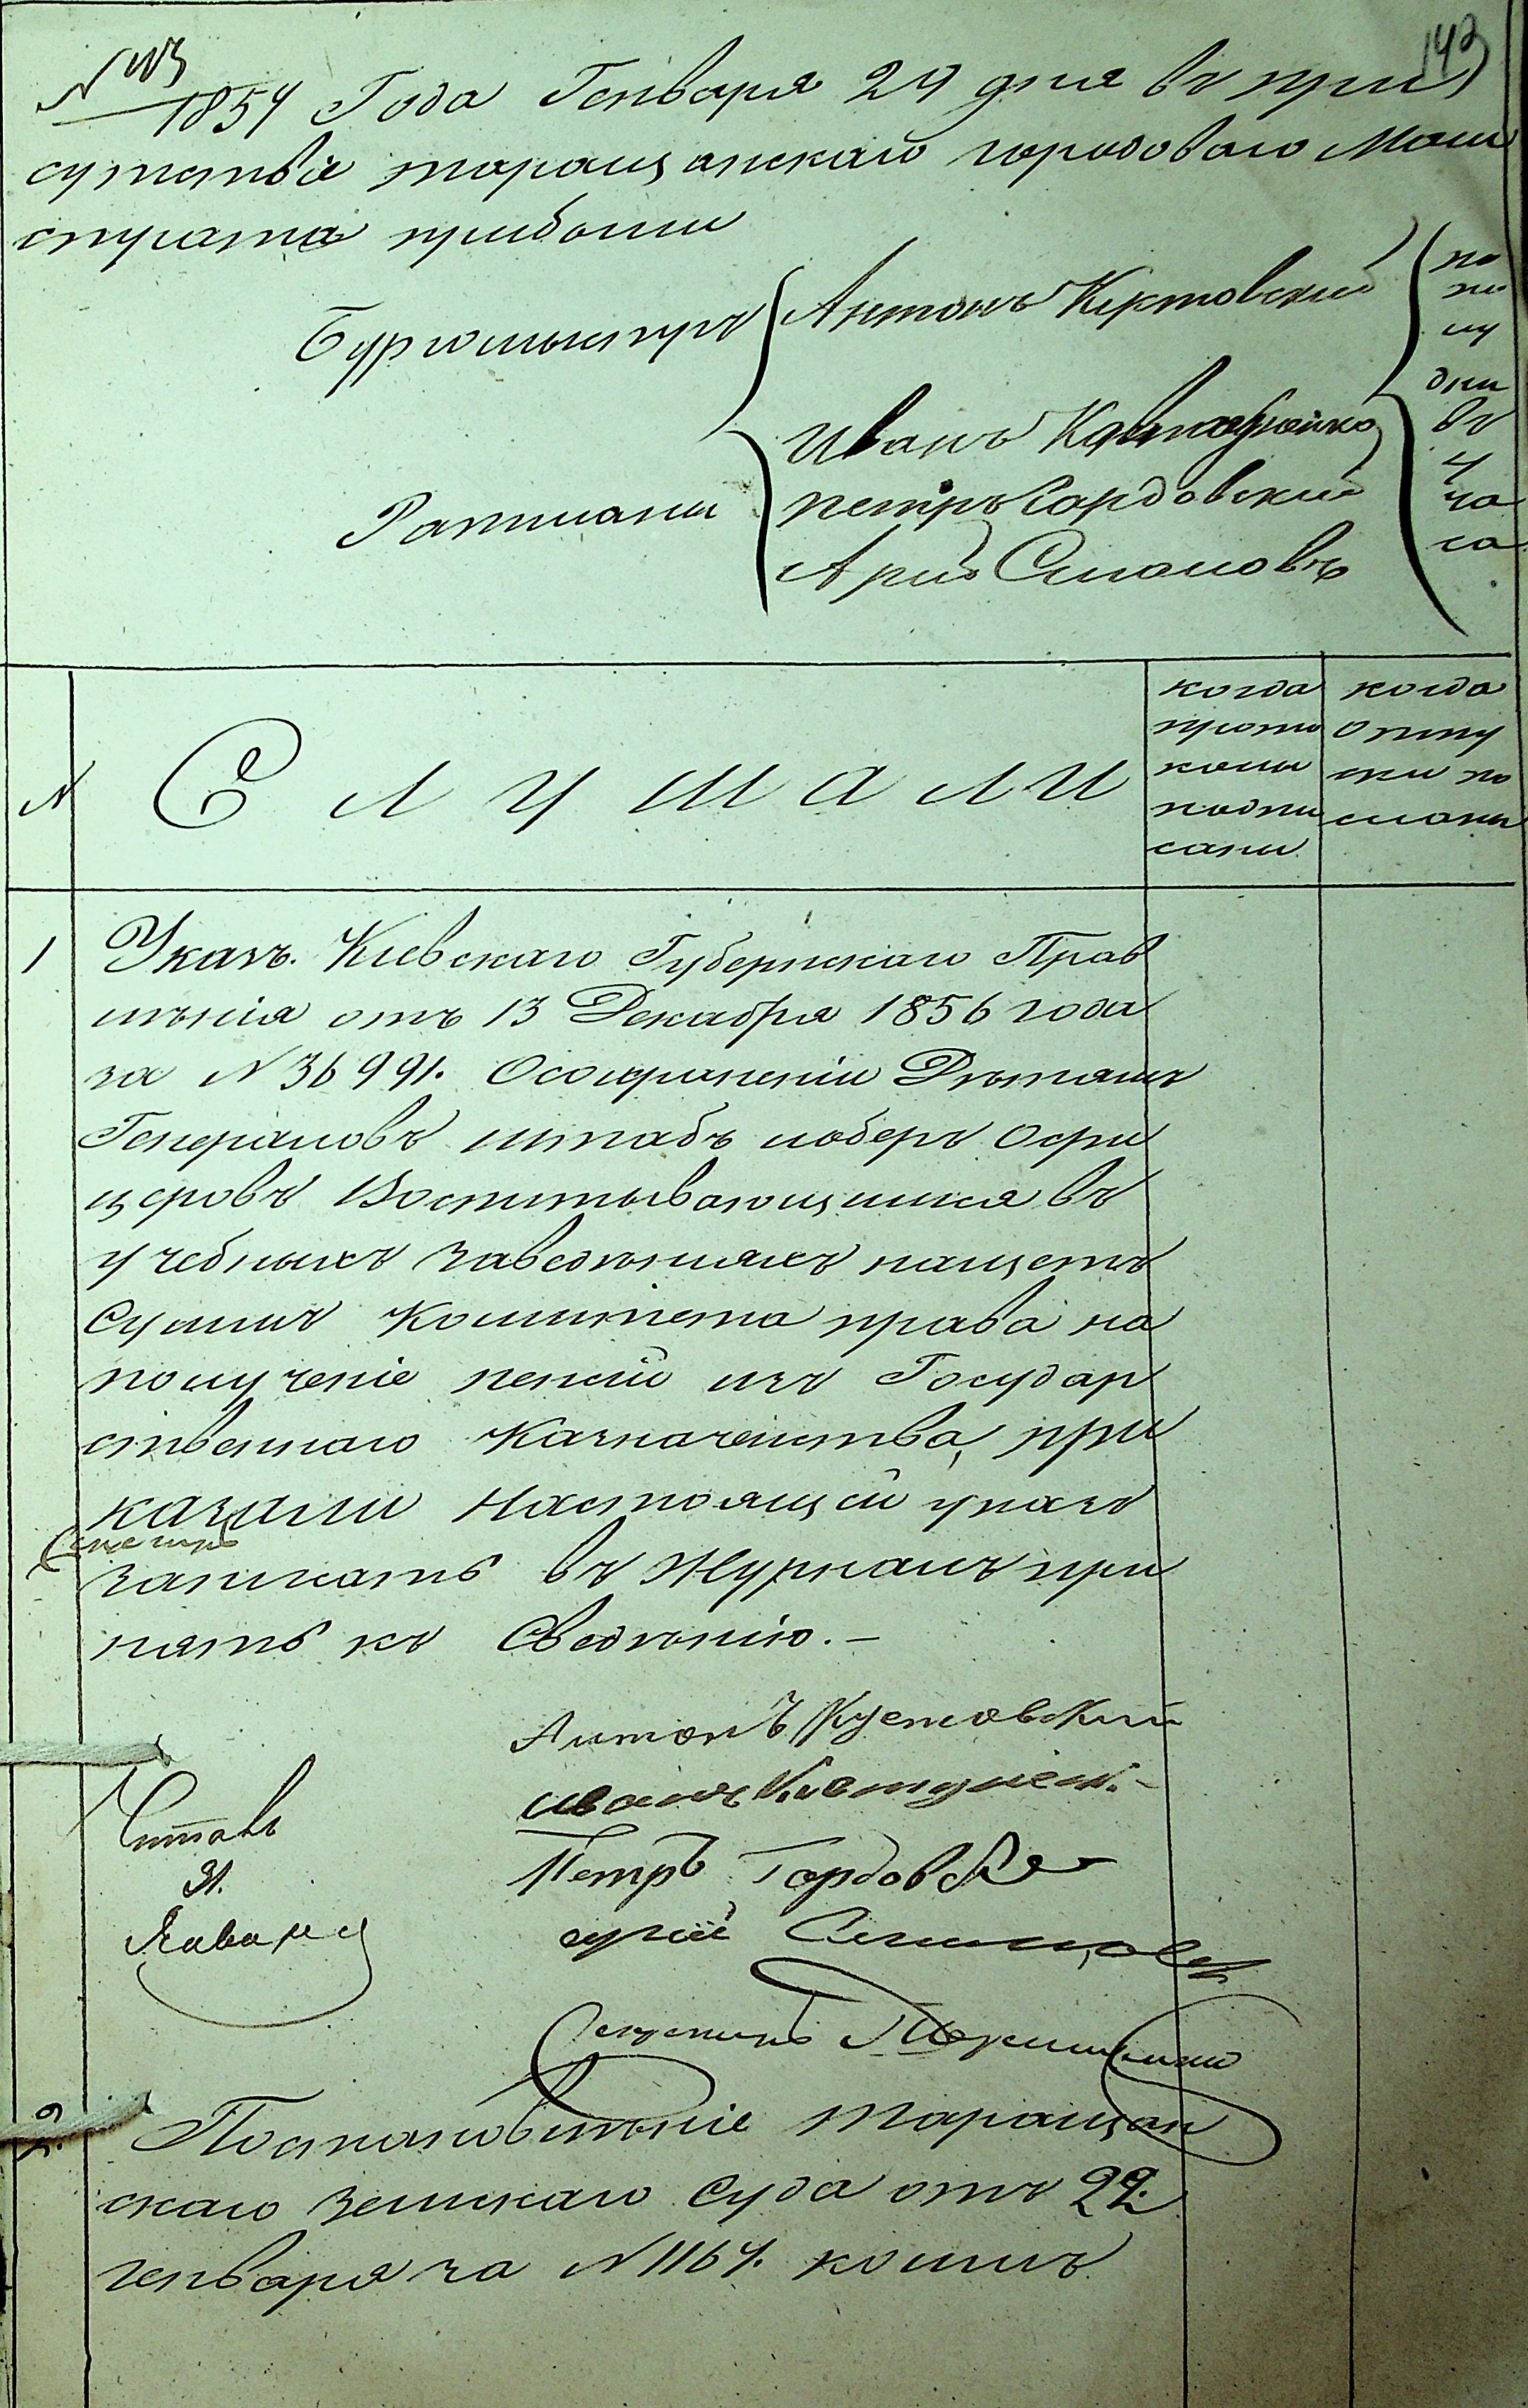 142
1857 Года Генваря 29 дня въ при
сутствіе таращанскаго городоваго Маги
страта прибыли
Бургомистръ
Антонъ
Ратманы
Иванъ
Петръ Гордовскій
Арій
по
по
лу
дни
въ
4
ча
са
N
Слушали
когда
прото
колы
подпи
саны
когда
отпу
ски по
сланы
1
Указъ Кіевскаго Губернскаго Прав
ленія отъ 13 Декабря 1856 года
за N 36991. Осохраненіи Дѣтямъ
Генераловъ штабъ иоберъ Офи
церовъ Воспитывающимся въ
учебныхъ заведеніяхъ нащетъ
Суммъ Комитета права на
полученіе пенсій изъ Государ
ственнаго Казначейства, при
казали Настоящій указъ
записать въ Журналъ при
нять къ Сведенію. —
Антонъ
Иванъ
Читалъ
31.
Января
Петръ Гордовскій
Арій
Секретарь
2
Постановленіе Таращан
скаго Земскаго Суда отъ 22
генваря за N 1164. коимъ